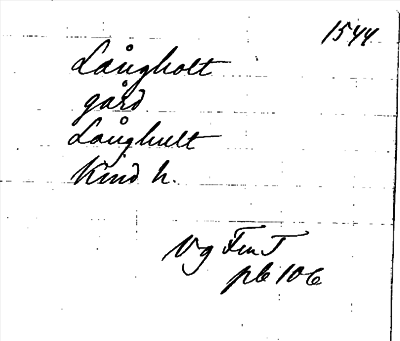 1544
Långholt
gård
Långhult
Kind h.
Vg Fm T
pb 106